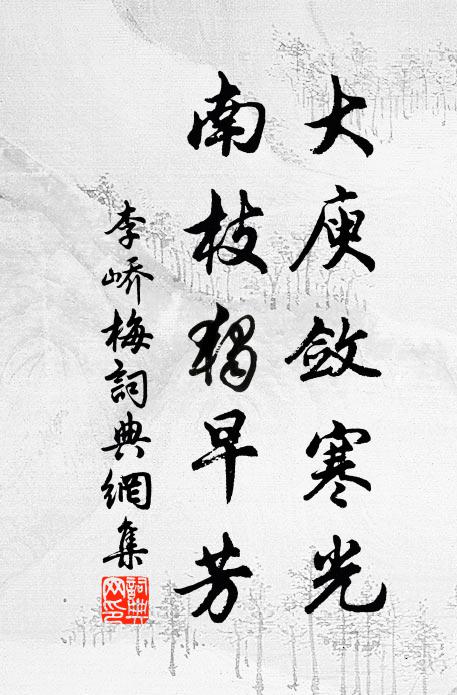 大庾斂寒光
南枝獨早芳
李嶠梅詞典網集
詞典网印